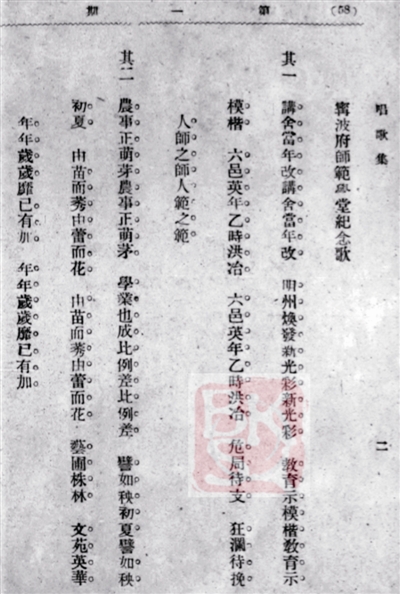 (58) 第一期
唱歌集 二
寧波府師範學堂紀念歌
其一 講舍當年改講舍當年改 明州煥發新光彩新光彩 教育示模楷教育示
模楷 六邑英年乙時洪冶 六邑英年乙時洪冶 危局待支 狂瀾待挽
人師之師人範之範
其二 農事正萌芽農事正萌芽 學業也成比例差比例差 譬如秧初夏譬如秧
初夏 由苗而莠由蕾而花 由苗而莠由蕾而花 藝圃株林 文苑英華
年年歲歲靡已有加 年年歲歲靡已有加